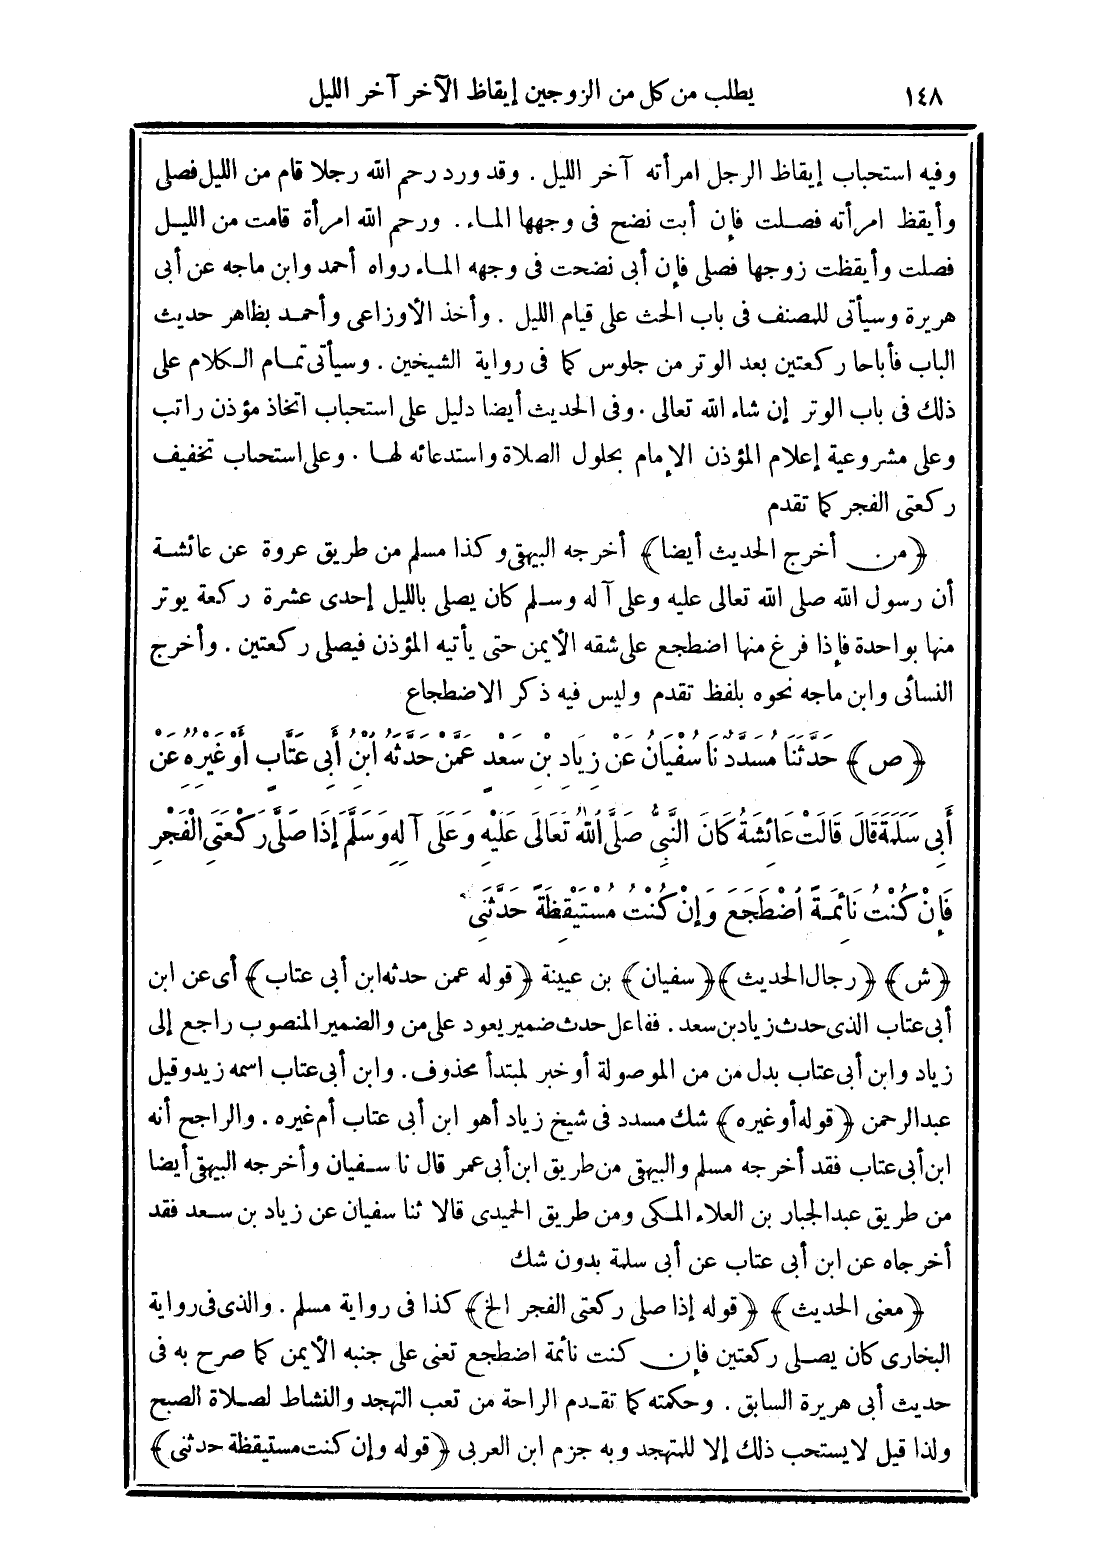 ١٤٨ يطلب من كل من الزوجين إيقاظ الآخر آخر الليل
وفيه استحباب إيقاظ الرجل امرأته آخر الليل . وقد ورد رحم الله رجلا قام من الليل فصلى
وأيقظ امرأته فصلت فإن أبت نضح فى وجهها الماء . ورحم الله امرأة قامت من الليل
فصلت وأيقظت زوجها فصلى فإن أبى نضحت فى وجهه الماء رواه أحمد وابن ماجه عن أبى
هريرة وسيأتى للمصنف فى باب الحث على قيام الليل . وأخذ الأوزاعى وأحمد بظاهر حديث
الباب فأباحا ركعتين بعد الوتر من جلوس كما فى رواية الشيخين . وسيأتى تمام الكلام على
ذلك فى باب الوتر إن شاء الله تعالى . وفى الحديث أيضا دليل على استحباب اتخاذ مؤذن راتب
وعلى مشروعية إعلام المؤذن الإمام بحلول الصلاة واستدعائه لها . وعلى استحباب تخفيف
ركعتى الفجر كما تقدم
﴿من أخرج الحديث أيضا﴾ أخرجه البيهقى وكذا مسلم من طريق عروة عن عائشة
أن رسول الله صلى الله تعالى عليه وعلى آله وسلم كان يصلى بالليل إحدى عشرة ركعة يوتر
منها بواحدة فإذا فرغ منها اضطجع على شقه الأيمن حتى يأتيه المؤذن فيصلى ركعتين . وأخرج
النسائى وابن ماجه نحوه بلفظ تقدم وليس فيه ذكر الاضطجاع
﴿ص﴾ حَدَّثَنَا مُسَدَّدٌ نَا سُفْيَانُ عَنْ زِيَادِ بْنِ سَعْدٍ عَمَّنْ حَدَّثَهُ ابْنُ أَبِى عَتَّابٍ أَوْ غَيْرُهُ عَنْ
أَبِى سَلَمَةَ قَالَ قَالَتْ عَائِشَةُ كَانَ النَّبِىُّ صَلَّى اللهُ تَعَالَى عَلَيْهِ وَعَلَى آلِهِ وَسَلَّمَ إِذَا صَلَّى رَكْعَتَىِ الْفَجْرِ
فَإِنْ كُنْتُ نَائِمَةً اضْطَجَعَ وَإِنْ كُنْتُ مُسْتَيْقِظَةً حَدَّثَنِى
﴿ش﴾ ﴿رجال الحديث﴾ ﴿سفيان﴾ بن عيينة ﴿قوله عمن حدثه ابن أبى عتاب﴾ أى عن ابن
أبى عتاب الذى حدث زياد بن سعد . ففاعل حدث ضمير يعود على من والضمير المنصوب راجع إلى
زياد وابن أبى عتاب بدل من من الموصولة أو خبر لمبتدأ محذوف . وابن أبى عتاب اسمه زيد وقيل
عبد الرحمن ﴿قوله أو غيره﴾ شك مسدد فى شيخ زياد أهو ابن أبى عتاب أم غيره . والراجح أنه
ابن أبى عتاب فقد أخرجه مسلم والبيهقى من طريق ابن أبى عمر قال نا سفيان وأخرجه البيهقى أيضا
من طريق عبد الجبار بن العلاء المكى ومن طريق الحميدى قالا ثنا سفيان عن زياد بن سعد فقد
أخرجاه عن ابن أبى عتاب عن أبى سلمة بدون شك
﴿معنى الحديث﴾ ﴿قوله إذا صلى ركعتى الفجر الخ﴾ كذا فى رواية مسلم . والذى فى رواية
البخارى كان يصلى ركعتين فإن كنت نائمة اضطجع تعنى على جنبه الأيمن كما صرح به فى
حديث أبى هريرة السابق . وحكمته كما تقدم الراحة من تعب التهجد والنشاط لصلاة الصبح
ولذا قيل لا يستحب ذلك إلا للمتهجد وبه جزم ابن العربى ﴿قوله وإن كنت مستيقظة حدثنى﴾